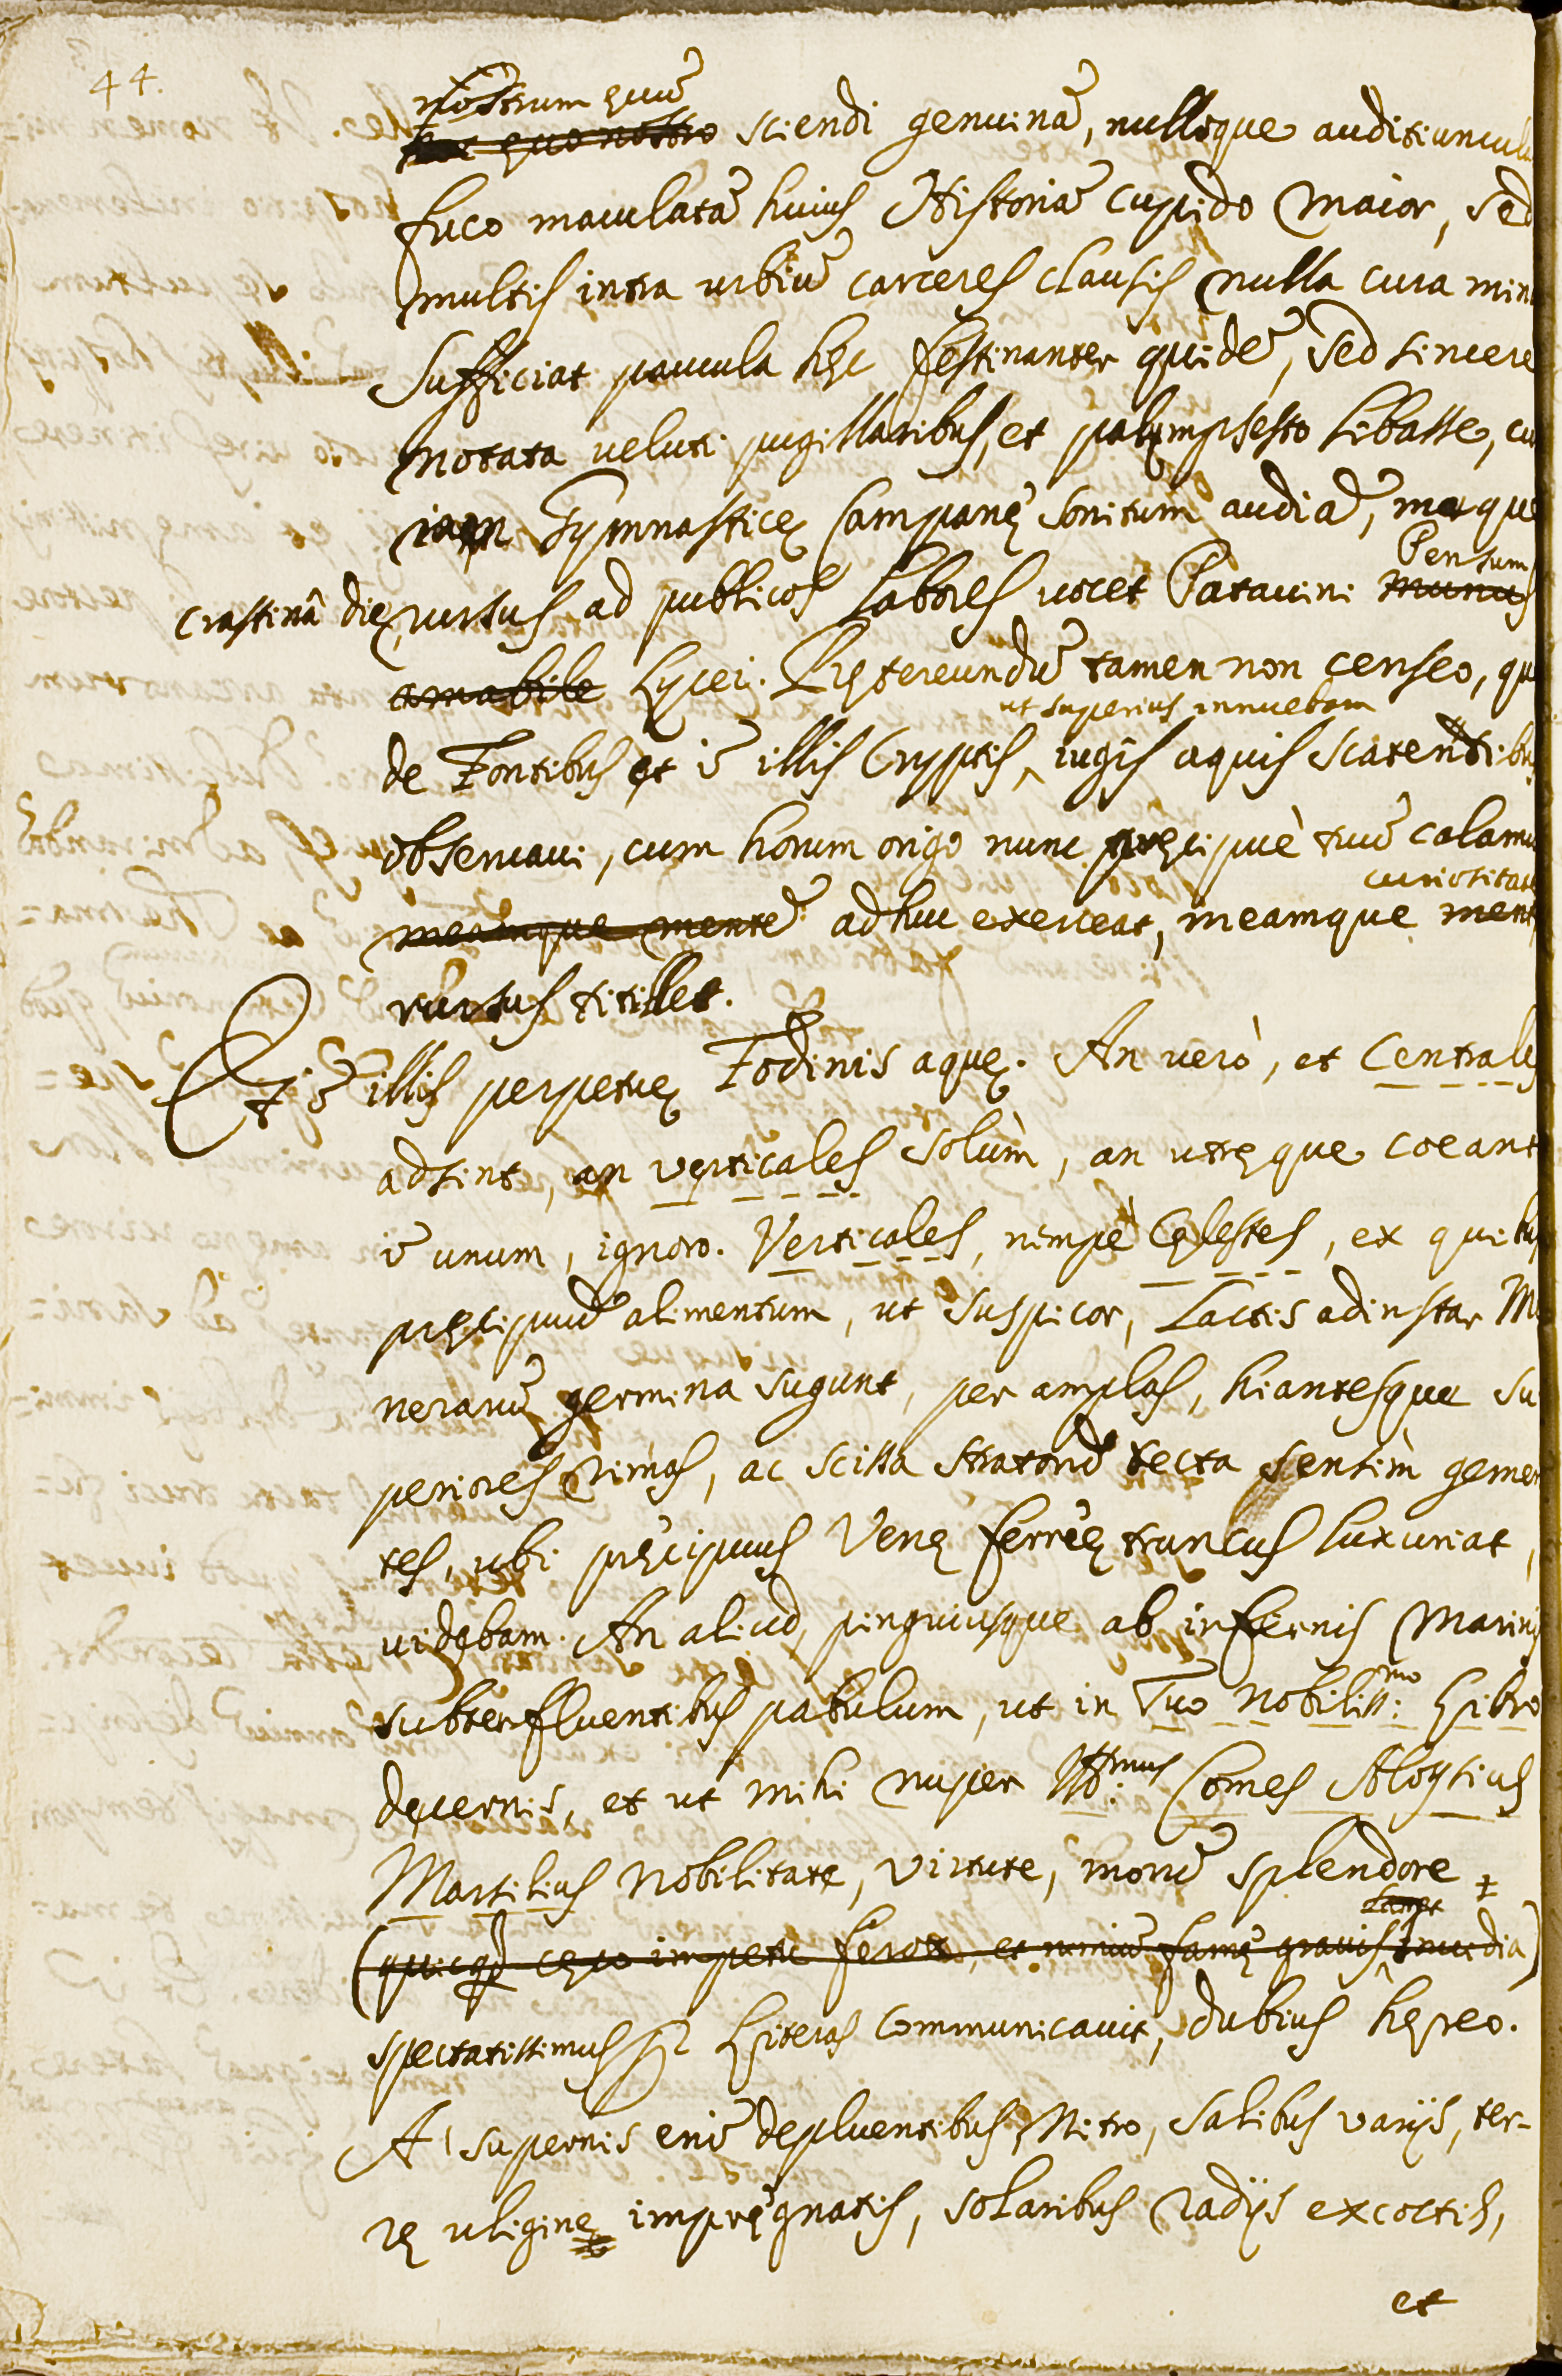 44.
nostrum quū
quo nostro sciendi genuinā, nullisque auditiuncul
fuco maculatā huius Historiæ cupido maior, sed
multis intra urbiū carceres clausis nulla cura min
Sufficiat paucula hęc festinanter quidē, sed sincere
notata veluti pugillaribus, et palympsesto libasse, cū
iam Gymnasticę Campanę sonitum audiā, meque
Pensum
crastinâ die rursus ad publicos labores vocet Patavini munus
amabile Lycei. Prętereundū tamen non censeo, qu
ut superius innuebam
de Fontibus et ī illis Cryptis, iugis aquis scatentibus
observavi, cum horum origo nunc pręcipuè tuū calamū
curiositate
meamque mentē adhuc exerceat, meamque ment
rursus titillet.
Et ī illis perpetuę Fodinis aquę. An verò, et Centrales
adsint, an verticales solùm, an utręque coeant
ī unum, ignoro. Verticales, nempè Cęlestes, ex quibus
pręcipuū alimentum, ut suspicor, Lactis adinstar Mi
neraliū germina sugunt, per amplas, hiantesque su
periores rimas, ac scissa stratorū tecta sensìm gemen
tes, ubi pręcipuus Venę ferręę truncus luxuriat,
videbam. An aliud, pinguiusque ab infernis Marinis
subterfluentibus pabulum, ut in Tuo Nobiliss:mo Libro
decernis, et ut mihi nuper Ill:mus Comes Aloysius
Marsilius Nobilitate, Virtute, morū splendore
(quicqd cęco impetu ferox, et nimiū famę gravis invidia)
spectatissimus per Literas communicavit, dubius hęreo.
A supernis enī depluentibus Nitro, Salibus variis, ter-
rę uligine impręgnatis, solaribus radiis excoctis,
et